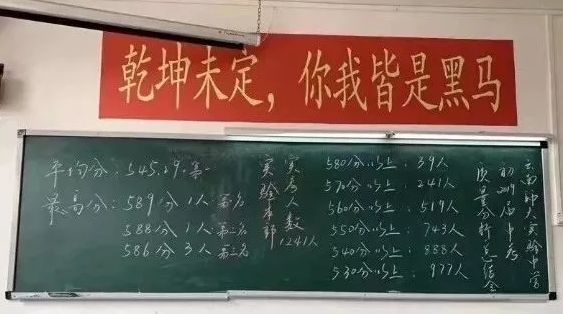 乾坤未定，你我皆是黑马
平均分：545.29 第一
最高分：589分 1人 第一名
588分 1人 第二名
586分 3人 第三名
实考人数1241人
实验本部
580分以上：39人
570分以上：241人
560分以上：519人
550分以上：743人
540分以上：888人
530分以上：977人
云南师大实验中学
初2019届中考
质量分析总结会